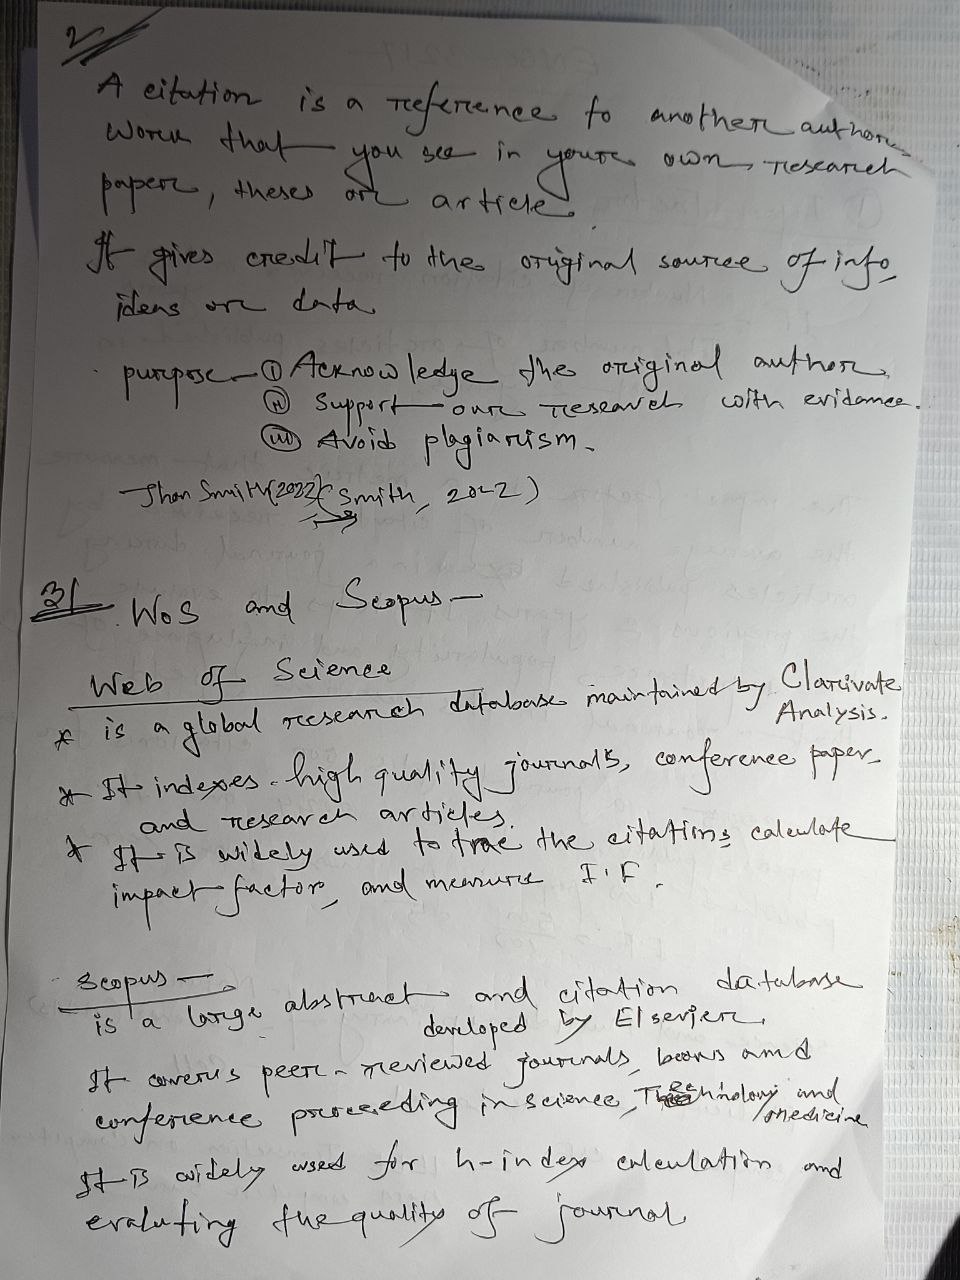 2/
A citation is a reference to another author
work that you see in your own research
paper, theses or article.
It gives credit to the original source of info,
ideas or data.
purpose - (i) Acknowledge the original author,
(ii) Support our research with evidance.
(iii) Avoid plagiarism.
Jhon Smith (2022) (Smith, 2022)
3/ WoS and Scopus -
Web of Science
* is a global research database maintained by Clarivate
Analysis.
* It indexes high quality journals, conference paper,
and research articles.
* It is widely used to trace the citations calculate
impact factor, and measure I.F.
Scopus -
is a large abstract and citation database
developed by Elsevier.
It covers peer-reviewed journals, books and
conference proceeding in science, Technology and
medicine
It is widely used for h-index calculation and
evaluting the quality of journal